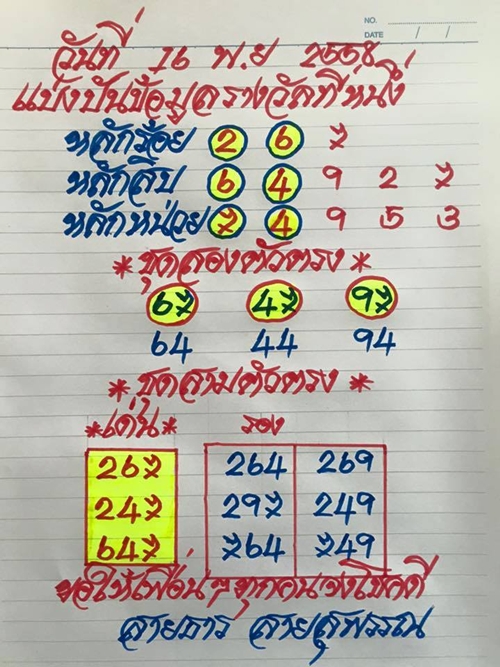 NO.
DATE / /
วันที่ 16 พ.ย 2558
แบ่งปันข้อมูลรางวัลที่หนึ่ง
หลักร้อย 2 6 7
หลักสิบ 6 4 9 2 7
หลักหน่วย 7 4 9 5 3
*ชุดสองตัวตรง*
67 47 97
64 44 94
*ชุดสามตัวตรง*
*เด่น* รอง
267 264 269
247 297 249
647 764 749
ขอให้เพื่อนๆทุกคนจงโชคดี
สายธาร สายสุพรรณ